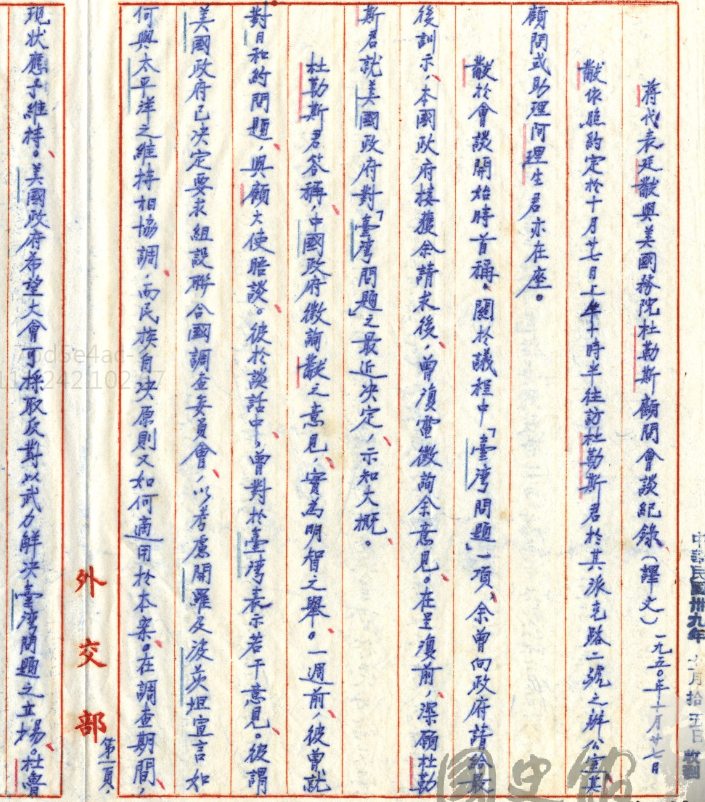 蔣代表廷黻與美國務院杜勒斯顧問會談紀錄（譯文）一九五〇年十月廿七日
黻依照約定於十月廿七日上午十時半往訪杜勒斯君於其派克路二號之辦公室其
顧問或助理阿理生君亦在座。
黻於會談開始時首稱，關於議程中「臺灣問題」一項，余曾向政府請給最
後訓示，本國政府接獲余請求後，曾復電徵詢余意見。在呈復前，深願杜勒
斯君就美國政府對「臺灣問題」之最近決定，示知大概。
杜勒斯君答稱，中國政府徵詢黻之意見，實為明智之舉。一週前，彼曾就
對日和約問題，與顧大使晤談。彼於談話中，曾對於臺灣表示若干意見。彼謂
美國政府已決定要求組設聯合國調查委員會，以考慮開羅及波茨坦宣言如
何與太平洋之維持相協調，而民族自決原則又如何適用於本案。在調查期間，
現狀應予維持。美國政府希望大會可採取反對以武力解決臺灣問題之立場。杜魯
外交部
第一頁
中華民國卅九年 月拾五日
國史館